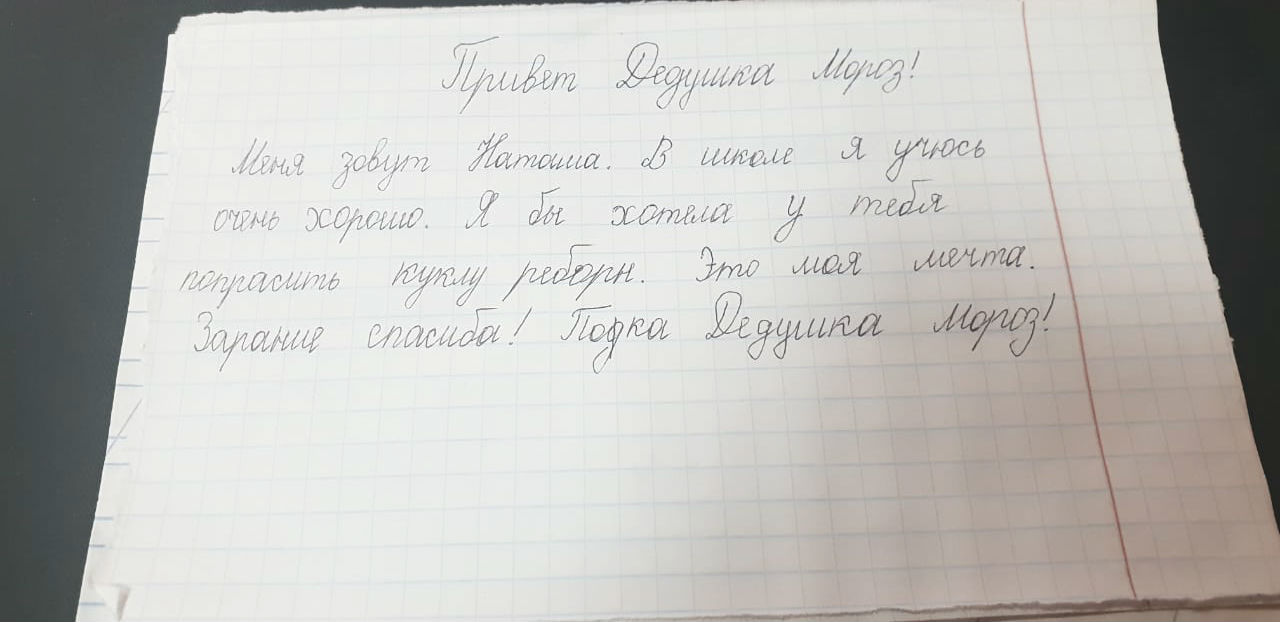 Привет Дедушка Мороз!
Меня зовут Наташа. В школе я учюсь
очень хорошо. Я бы хотела у тебя
попрасить куклу реборн. Это моя мечта.
Зарание спасиба! Подка Дедушка Мороз!